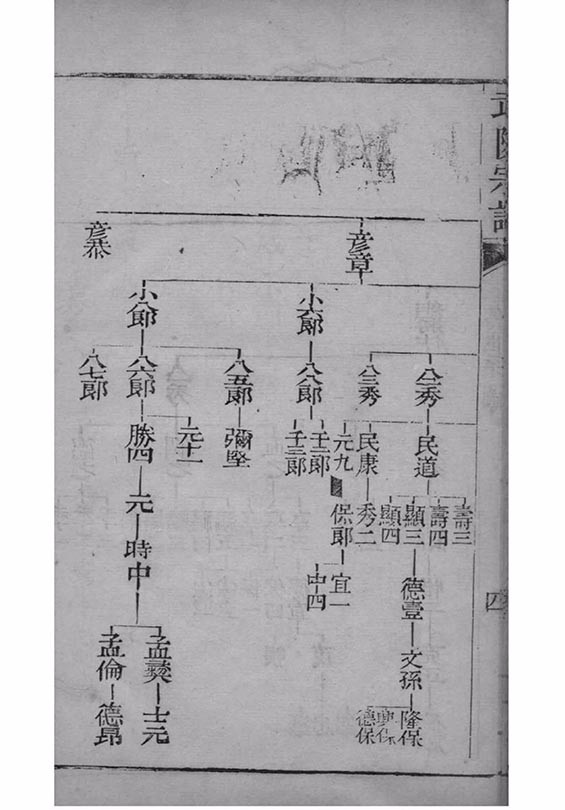 宗譜
四
彥章
彥恭
小六郎
八二秀
八三秀
八八郎
八五郎
八六郎
八七郎
民道
民康
元九
壬二郎
壬三郎
彌堅
元十一
勝四
壽三
壽四
顯三
顯四
秀二
保郎
元一
德壹
宜一
中四
時中
文孫
孟㷼
孟倫
隆保
德保
士元
德昂